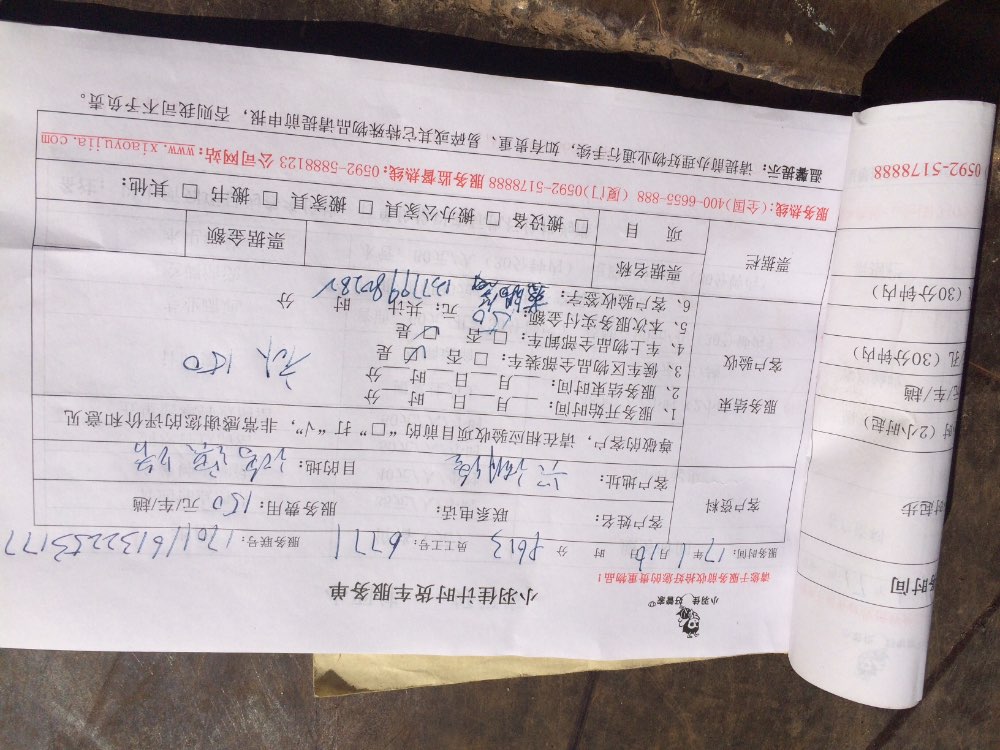 小羽佳 好管家
小羽佳计时货车服务单
请您于服务前收拾好您的贵重物品！
服务时间：17年1月16日 时 分 员工工号：6771 服务联号：1701161322253177
客户资料
客户姓名： 联系电话： 服务费用：150元/车/趟
客户地址： 目的地：
尊敬的客户，请在相应验收项目前的“□”打“√”，非常感谢您的评价和意见
服务结束
客户验收
1、服务开始时间： 月 日 时 分
2、服务结束时间： 月 日 时 分
3、候车区物品全部装车：□否 ☑是
4、车上物品全部卸车：□否 ☑是
5、本次服务实付金额：150元；共计 时 分
6、客户验收签字：
150
票据栏
票据名称 票据金额
项 目 □ 搬设备 □ 搬办公家具 □ 搬家具 □ 搬书 □ 其他：
服务热线：(全国)400-6655-888 (厦门)0592-5178888 服务监督热线：0592-5888123 公司网站：www.xiaoyujia.com
温馨提示：请提前办理好物业通行手续，如有贵重、易碎或其它特殊物品请提前申报，否则我司不予负责。
务时间
时起步
时（2小时起）
元/车/趟
孔（30分钟内）
（30分钟内）
0592-5178888